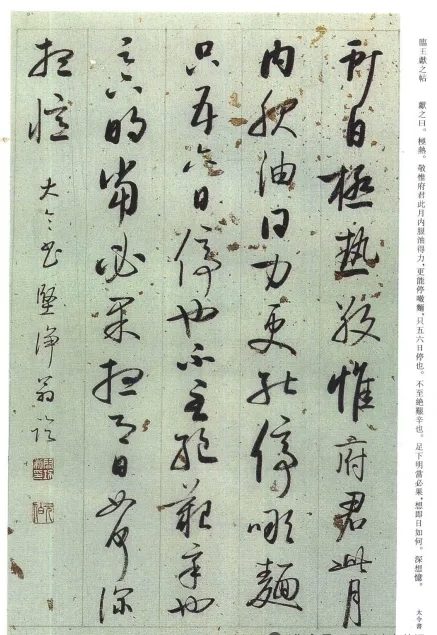 臨王獻之帖　獻之曰。極熱。敬惟府君此月内服油得力,更能停噉麵,只五六日停也。不至絶艱辛也。足下明當必果,想即日如何。深想憶。　大令書
獻之白極熱敬惟府君此月
内服油得力更能停噉麵
只五六日停也不至絶艱辛也
足下明當必果想即日如何深
想憶　大令書　堅淨翁臨